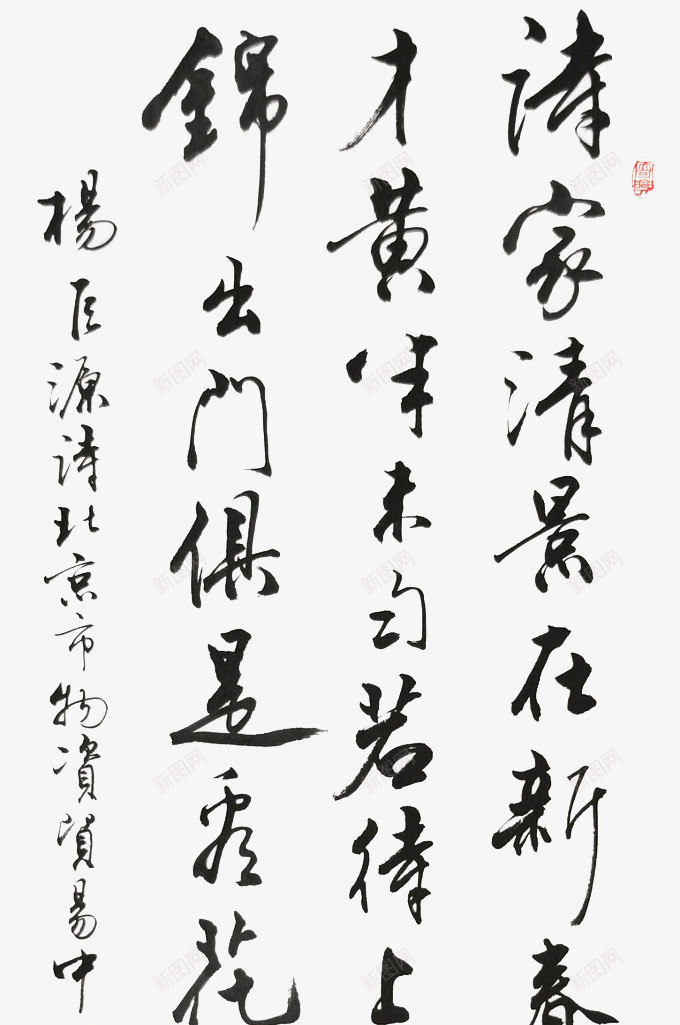 詩家清景在新春
才黃半未勻若待上
錦出門俱是看花
楊巨源詩北京市物資貿易中